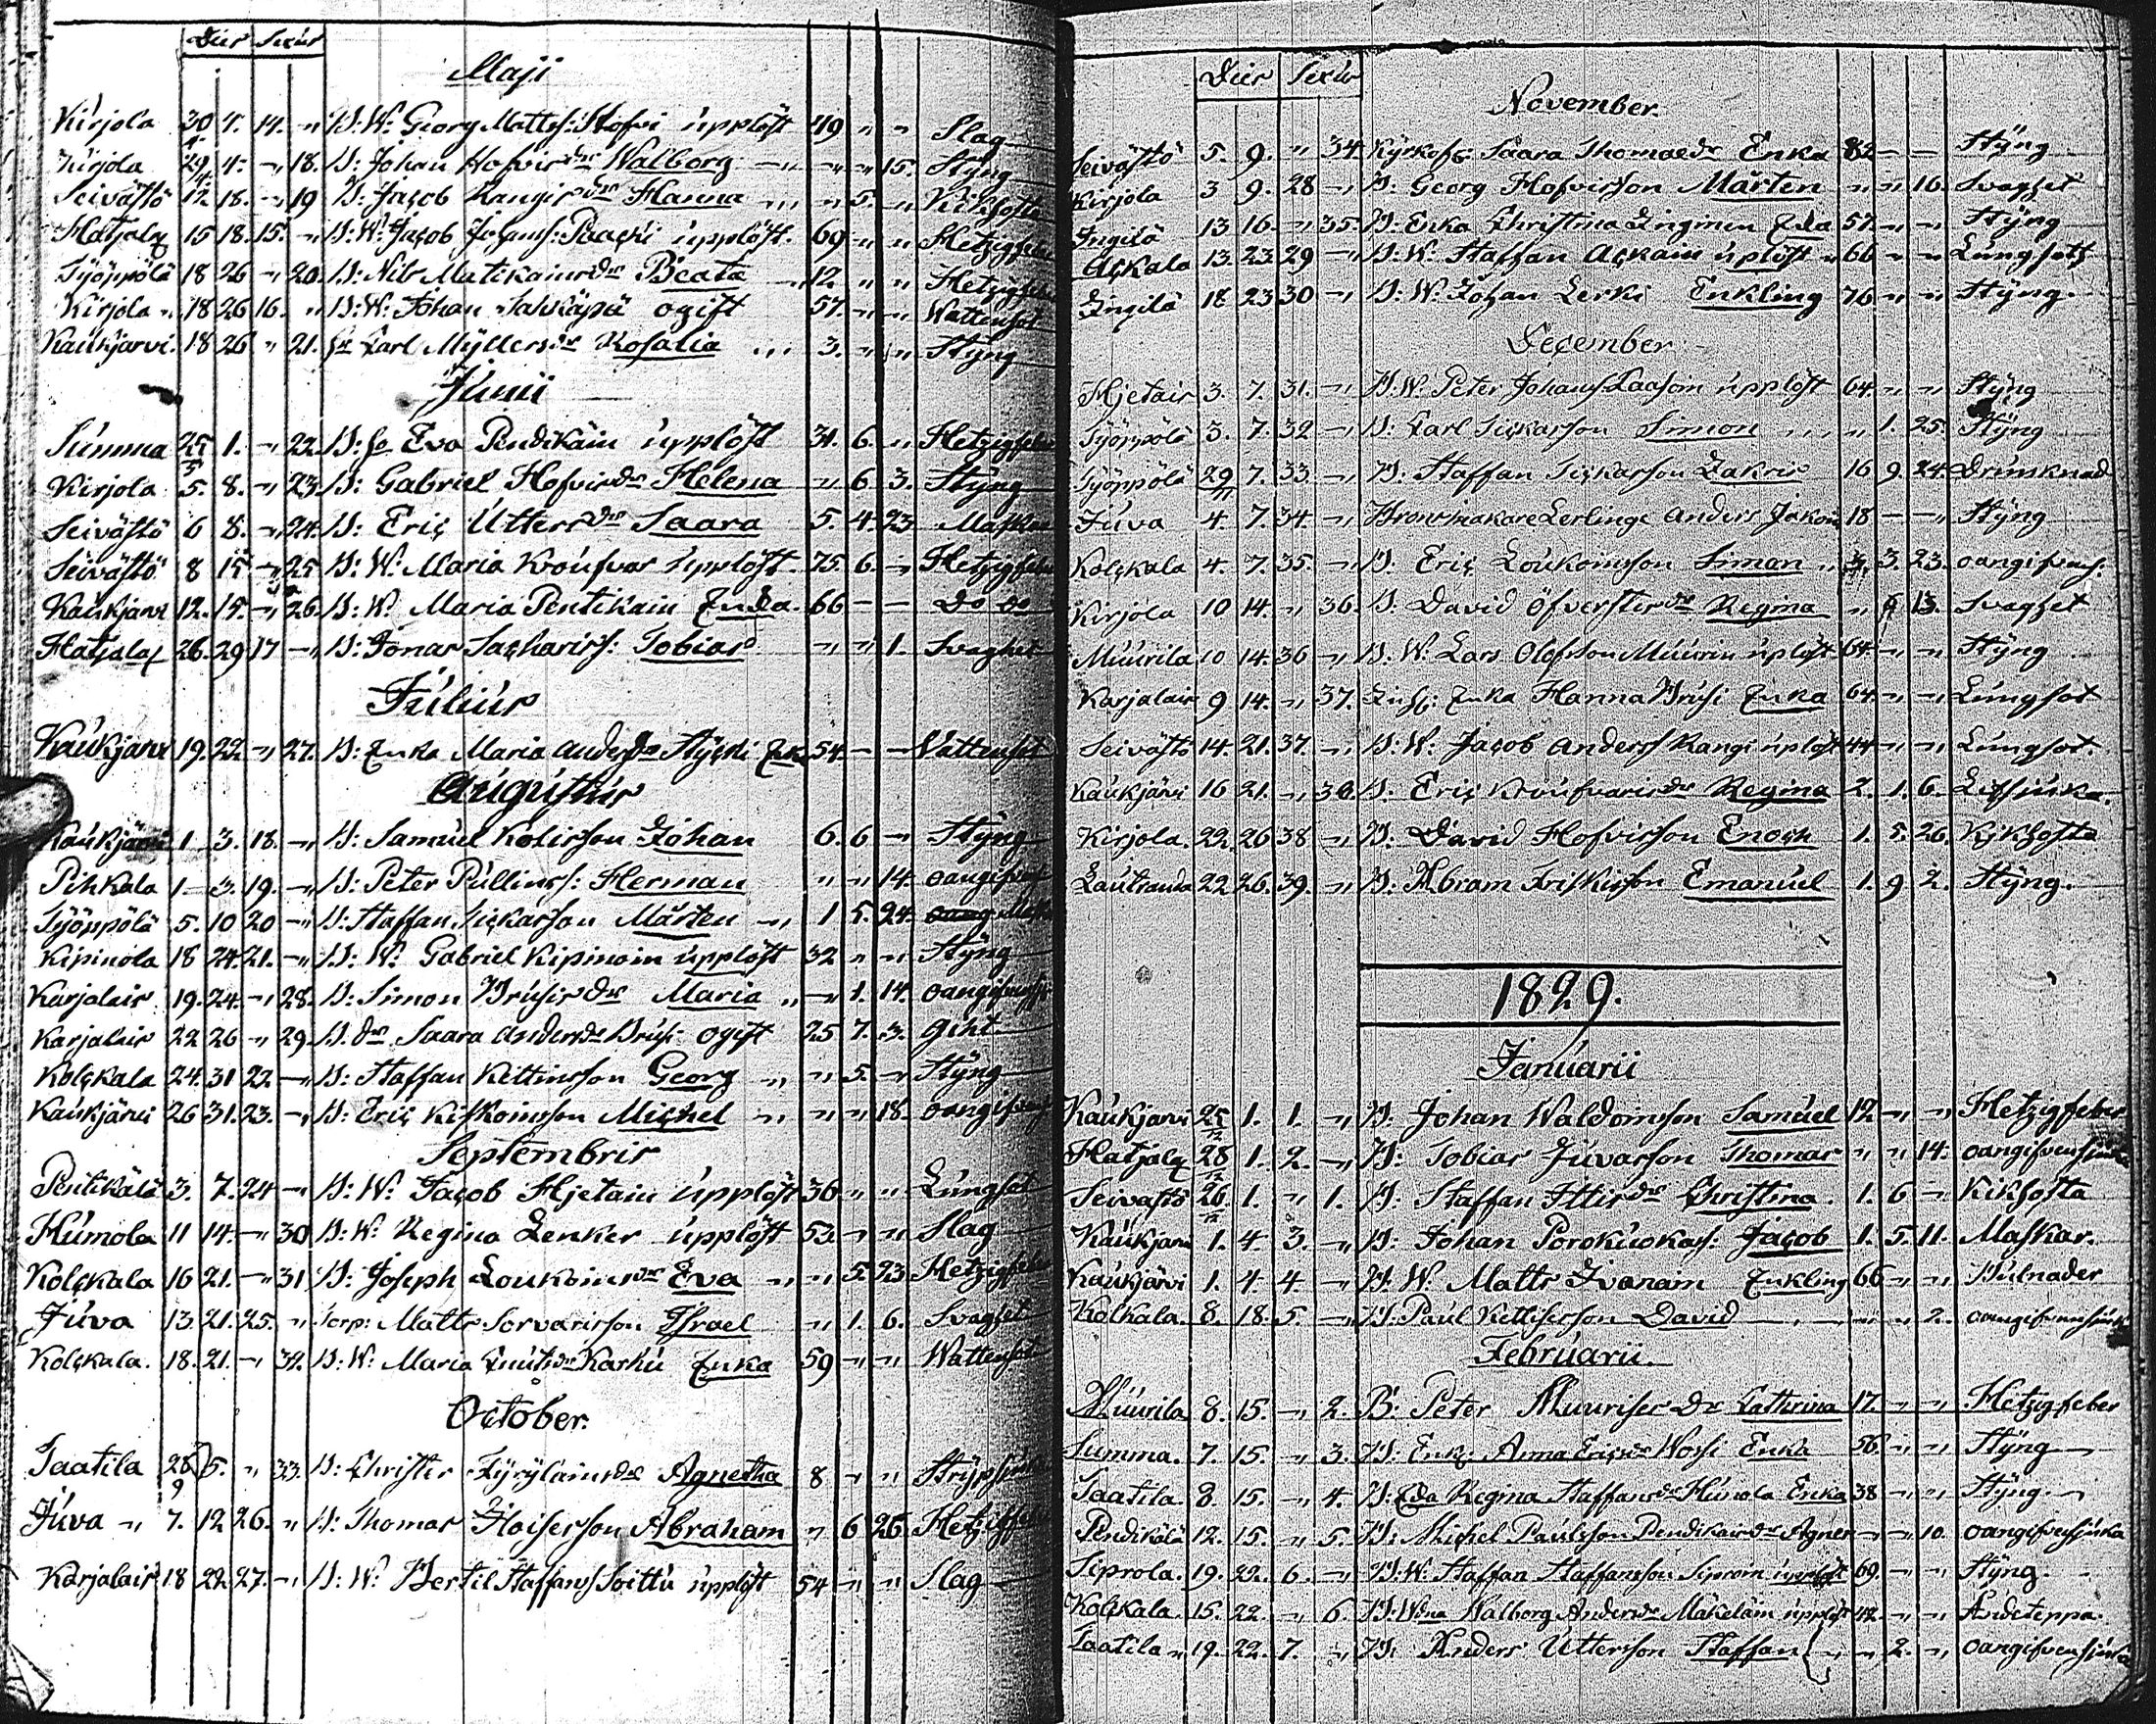 Dies Sexus
Maji
Kirjola 30/4 4. 14. " B: W: Georg Matts: Hofvi upplöst 49 " " Slag
Kirjola 29/4 4. " 18. B: Johan Hofvis dr Walborg " " 15. Styng
Seivästö 12 18. " 19 B: Jacob Rangis dr Hanna " 5. " Kikhosta
Hatjalax 15 18. 15. " B: W: Jacob Johans: Paacki upplöst. 69 " " Hetzigfeber
Syöppölä 18 26 " 20. B: Nils Matikains dr Beata 12 " " Hetzigfeber
Kirjola " 18 26 16. " B: W: Johan ogift 57. " " Wattensot
Kaukjärvi. 18 26 " 21. Carl Myllers dr Rosalia 3. " " Styng
Junii
Summa 25/5 1. " 22. B: Eva Pendikäin upplöst 31. 6. " Hetzigfeber
Kirjola 5. 8. " 23. B: Gabriel Hofvis dr Helena " 6. 3. Styng
Seivästö 6 8. " 24. B: Eric Utters dr Saara 5. 4. 23. Maskar
Seivästö 8 15 " 25 B: W: Maria Kroufvar upplöst. 75. 6. " Hetzigfeber
Kaukjärvi 12. 15. " 26. B: W: Maria Pentikäin Enka. 66 — — Do do
Hatjalax 26. 29 17 " B: Jonas Sachariss: Tobias " " 1. Svaghet
Julius
Kaukjärvi 19. 22. " 27. B: Enka Maria Anders dr Stycki Enka 54. — — Vattensot
Augustus
Kaukjärvi 1 3. 18. " B: Samuel Kolisson Johan 6. 6 " Styng
Pihkala 1 3. 19. " B: Peter Pullinss: Herman " " 14. oangifven
Syöppölä 5. 10 20 " B: Staffan Sickarson Mårten " 1 5. 24. Mask
Kipinola 18 24. 21. " B: W: Gabriel Kipinoin upplöst 32 " " Styng
Karjalais 19. 24. " 28. B: Simon Brusis dr Maria " 1. 14. oangifven
Karjalais 22 26 " 29. B. dr Saara Anders dr Brusi ogift 25 7. 3. Gikt
Kolckala 24. 31 22. " B: Staffan Kettinsson Georg " " 5. " Styng
Kaukjärvi 26 31. 23. " B: Eric Kiskoinsson Michel " " 18. oangifven
Septembris
Pentikälä 3. 7. 24 " B: W: Jacob Hjetain upplöst 36 " " Lungsot
Humola 11 14. " 30 B: W: Regina Lenker upplöst 53. " " Slag
Kolckala 16 21. " 31 B: Joseph Loukoins dr Eva " " 5. 23. Hetzigfeber
Juva 13. 21. 25. " Torp: Matts Sorvarisson Israel " 1. 6. Svaghet
Kolckala. 18. 21. " 32. B: W: Maria Knuts dr Karhu Enka 59 " " Wattensot
October.
Taatila 28/9 5. " 33. B: Christer Hyrylains dr Agnetha 8 " "
Juva " 7. 12 26. " B: Thomas Hoisersson Abraham " 6 26. Hetzigfeber
Karjalais 18 22. 27. " B: W: Bertil Staffans Soittu upplöst 54 " " Slag
Dies Sexus
November.
Seivästö 5. 9. " 34. Saara Thomæ dr Enka 82 — — Styng
Kirjola 3 9. 28 " B: Georg Hofvisson Mårten " " 16. Svaghet
Ingilä 13 16. " 35. B. Enka Christina Inginen Eda 57. " " Styng
Ackala 13. 23. 29 " B: W. Staffan Ackain uplöst " 66 " " Lungsott
Ingilä 18 23 30 " B: W: Johan Lerki Enkling 76 " " Styng.
December
Hjetais 3. 7. 31. " B. W. Peter Johans Laasoin upplöst 64. " " Styng
Syöppölä 3. 7. 32 " B: Carl Sickarson Simon " 1. 25. Styng
Syöppölä 29/11 7. 33. " B. Staffan Sickarson Zakris 16 9. 24. Drunknad
Juva 4. 7. 34. " Anders Jakoin 18 — " Styng
Kolckala 4. 7. 35. " B. Eric Loukoinsson Simon " 3. 23. oangifven
Kirjola 10 14. " 36. B. David Öfversters dr Regina " 6 13. Svaghet
Muurila 10 14. 36 " B. W: Lars Olofsson Muurin uplöst 64. " " Styng
Karjalais 9 14. " 37. Enka Hanna Brusi Enka 64. " " Lungsot
Seivästö 14. 21. 37. " B: W: Jacob Anderss Rangi uplöst 44 " " Lungsot
Kaukjärvi 16 21. " 38. B. Eric Kroufvaris dr Regina 2. 1. 6. Litsjuka.
Kirjola. 22. 26 38 " B. David Hofvisson Enoch 1. 5. 26. Kikhosta
Lautranda 22 26. 39. " B: Abram Friskisson Emanuel 1. 9 2. Styng.
1829.
Januarii
Kaukjärvi 25/12 1. 1. " B. Johan Waldoinsson Samuel 12 " " Hetzigfeber
Hatjalax 28/12 1. 2. " B: Tobias Juvasson Thomas " " 14. oangifvensjuka
Seivästö 26/12 1. " 1. B. Staffan Ittis dr Christina. 1. 6 " Kikhosta
Kaukjärvi 1. 4. 3. " B: Johan Porokuokas: Jacob 1. 5. 11. Maskar.
Kaukjärvi 1. 4. 4. " B. W. Matts Ivanain Enkling 66 " " Bulnader
Kolkala. 8. 18. 5. " B. Paul Kettisersson David " " 2. oangifvensjuk
Februarii.
Muurila 8. 15. " 2. B: Peter Muuriser Dr Cathrina 17. " " Hetzigfeber
Summa. 7. 15. " 3. B: Enk: Anna Erics dr Wossi Enka 56 " " Styng
Taatila. 8. 15. " 4. B: Eda Regina Staffans dr Humola Enka 38 " " Styng.
Pendikälä 12. 15. " 5. B: Michel Paulsson Pendikais dr Agnes " " 10. oangifvensjuka
Siprola. 19. 22. 6. " B: W. Staffan Staffansson Siproin upplöst 69. " " Styng.
Kolckala. 15. 22. " 6. B: Wdna Walborg Anders dr Mäkeläin upplöst 42. " " Andeteppa.
Taatila " 19. 22. 7. " B. Anders Uttersson Staffan " " 2. " oangifvensjuka